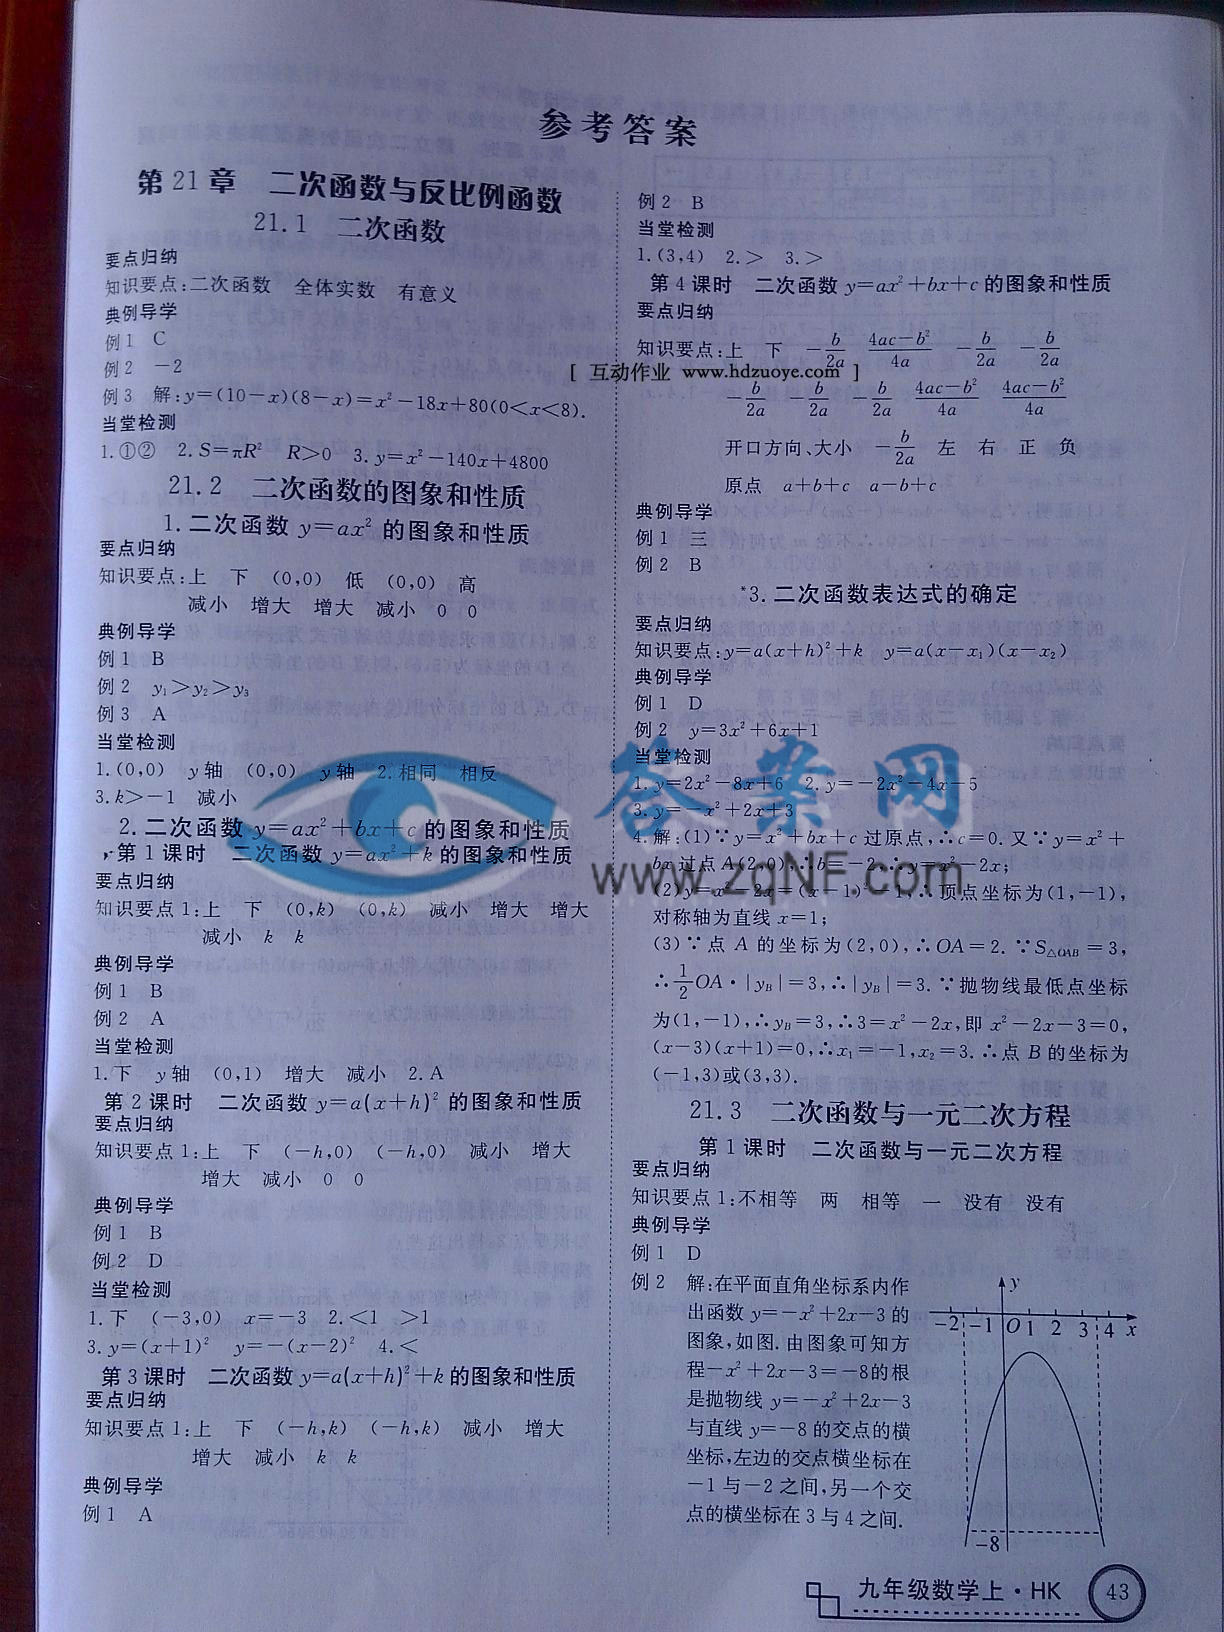 参考答案
第21章 二次函数与反比例函数
21.1 二次函数
要点归纳
知识要点:二次函数 全体实数 有意义
典例导学
例1 C
例2 -2
例3 解:y=(10-x)(8-x)=x²-18x+80(0<x<8).
当堂检测
1.①② 2.S=πR² R>0 3.y=x²-140x+4800
21.2 二次函数的图象和性质
1.二次函数 y=ax² 的图象和性质
要点归纳
知识要点:上 下 (0,0) 低 (0,0) 高
减小 增大 增大 减小 0 0
典例导学
例1 B
例2 y₁>y₂>y₃
例3 A
当堂检测
1.(0,0) y轴 (0,0) y轴 2.相同 相反
3.k>-1 减小
2.二次函数 y=ax²+bx+c 的图象和性质
第1课时 二次函数 y=ax²+k 的图象和性质
要点归纳
知识要点1:上 下 (0,k) (0,k) 减小 增大 增大
减小 k k
典例导学
例1 B
例2 A
当堂检测
1.下 y轴 (0,1) 增大 减小 2.A
第2课时 二次函数 y=a(x+h)² 的图象和性质
要点归纳
知识要点1:上 下 (-h,0) (-h,0) 减小 增大
增大 减小 0 0
典例导学
例1 B
例2 D
当堂检测
1.下 (-3,0) x=-3 2.<1 >1
3.y=(x+1)² y=-(x-2)² 4.<
第3课时 二次函数 y=a(x+h)²+k 的图象和性质
要点归纳
知识要点1:上 下 (-h,k) (-h,k) 减小 增大
增大 减小 k k
典例导学
例1 A
例2 B
当堂检测
1.(3,4) 2.> 3.>
第4课时 二次函数 y=ax²+bx+c 的图象和性质
要点归纳
知识要点:上 下 -b/2a (4ac-b²)/4a -b/2a -b/2a
[ 互动作业 www.hdzuoye.com ]
-b/2a -b/2a -b/2a (4ac-b²)/4a (4ac-b²)/4a
开口方向、大小 -b/2a 左 右 正 负
原点 a+b+c a-b+c
典例导学
例1 三
例2 B
*3.二次函数表达式的确定
要点归纳
知识要点:y=a(x+h)²+k y=a(x-x₁)(x-x₂)
典例导学
例1 D
例2 y=3x²+6x+1
当堂检测
1.y=2x²-8x+6 2.y=-2x²-4x-5
3.y=-x²+2x+3
4.解:(1)∵y=x²+bx+c 过原点,∴c=0.又∵y=x²+
bx 过点 A(2,0),∴b=-2.∴y=x²-2x;
(2)y=x²-2x=(x-1)²-1,∴顶点坐标为(1,-1),
对称轴为直线 x=1;
(3)∵点 A 的坐标为(2,0),∴OA=2.∵S△OAB=3,
∴1/2 OA·|yB|=3,∴|yB|=3.∵抛物线最低点坐标
为(1,-1),∴yB=3,∴3=x²-2x,即 x²-2x-3=0,
(x-3)(x+1)=0,∴x₁=-1,x₂=3.∴点 B 的坐标为
(-1,3)或(3,3).
21.3 二次函数与一元二次方程
第1课时 二次函数与一元二次方程
要点归纳
知识要点1:不相等 两 相等 一 没有 没有
典例导学
例1 D
例2 解:在平面直角坐标系内作
出函数 y=-x²+2x-3 的
图象,如图.由图象可知方
程-x²+2x-3=-8的根
是抛物线 y=-x²+2x-3
与直线 y=-8 的交点的横
坐标,左边的交点横坐标在
-1 与-2 之间,另一个交
点的横坐标在 3 与 4 之间.
y
-2 -1 O 1 2 3 4 x
-8
答案网
www.zqNF.com
九年级数学上·HK 43